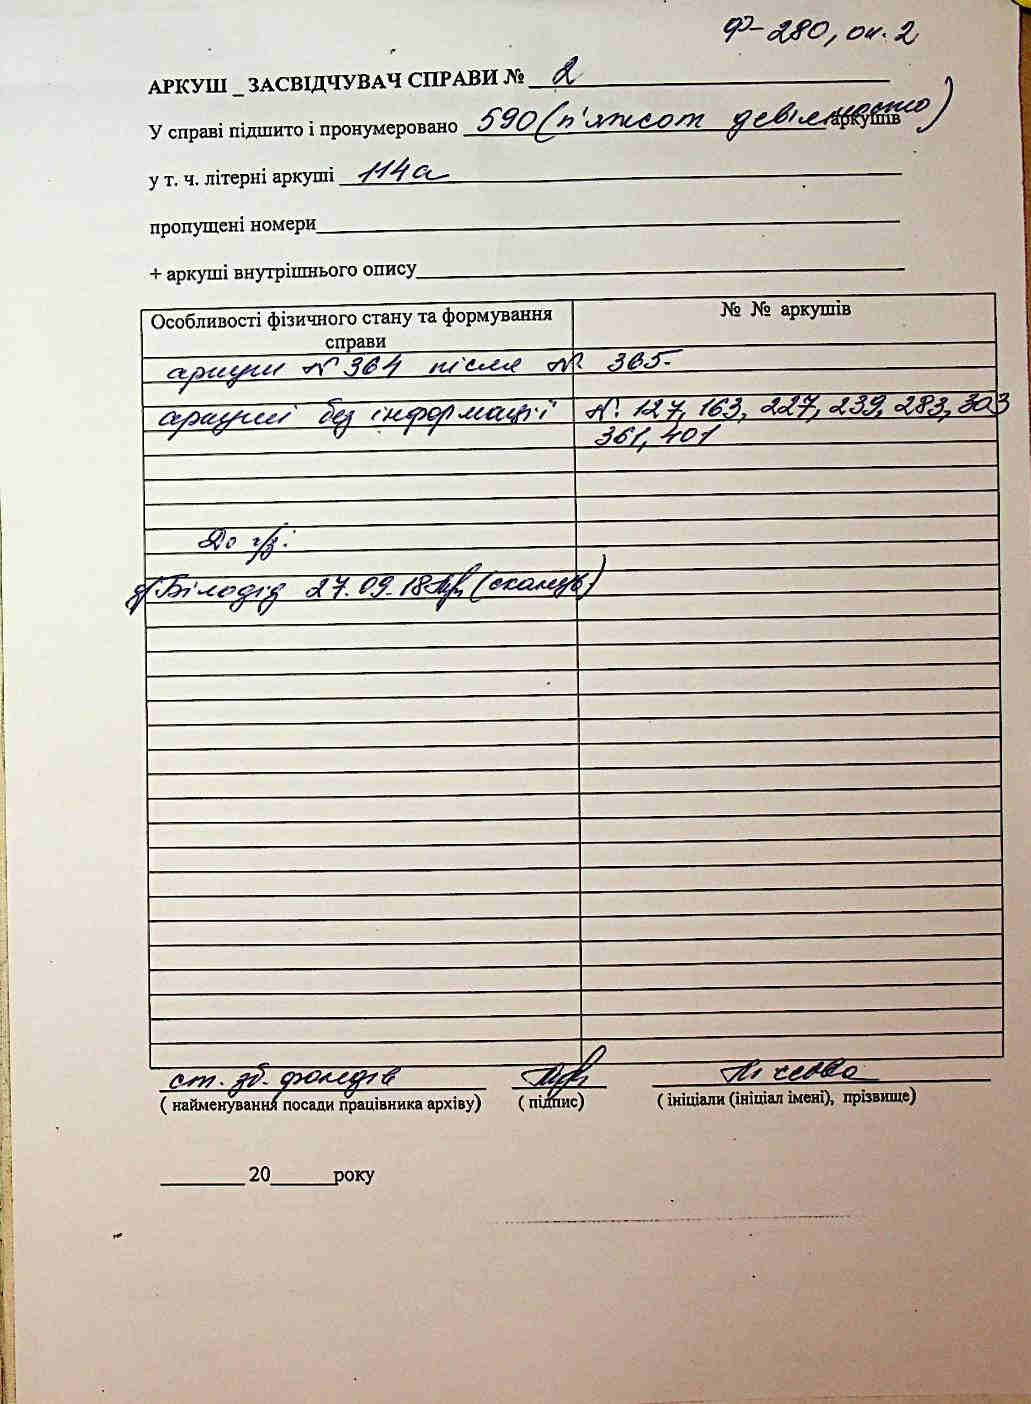 ф-280, оп. 2
АРКУШ _ ЗАСВІДЧУВАЧ СПРАВИ № 2
У справі підшито і пронумеровано 590 (п'ятсот девіяносто) аркушів
у т. ч. літерні аркуші 114а
пропущені номери
+ аркуші внутрішнього опису
Особливості фізичного стану та формування справи № № аркушів
аркуш № 364 після № 365.
аркуші без інформації №: 127, 163, 227, 239, 283, 303
361, 401
До
Білодід 27.09.18 (сканув)
ст. зб. фондів
( найменування посади працівника архіву) ( підпис) ( ініціали (ініціал імені), прізвище)
20 року